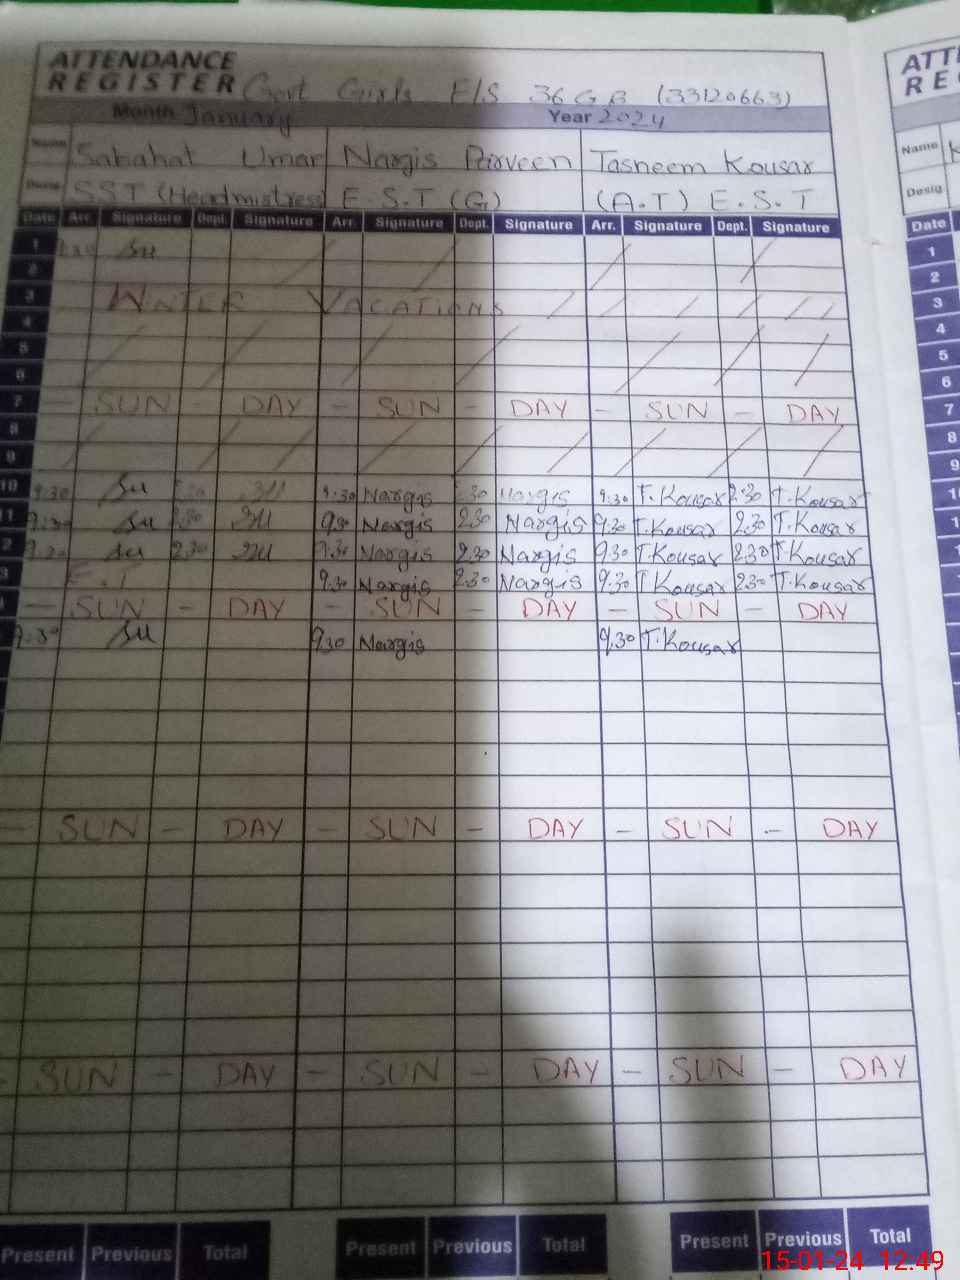 ATTENDANCE
REGISTER Govt Girls E/S 36 GB (33120663)
Month January Year 2024
Name Sabahat Umar Nargis Parveen Tasneem Kousar
Desig SST (Headmistress) E.S.T (G) (A.T) E.S.T
Date Arr. Signature Dept. Signature Arr. Signature Dept. Signature Arr. Signature Dept. Signature
1
2
3 WINTER VACATIONS
4
5
6
7 — SUN — DAY — SUN — DAY — SUN — DAY
8
9
10 9:30 9:30 Nargis 2:30 Nargis 9:30 T.Kousar 2:30 T.Kousar
11 9:30 2:30 9:30 Nargis 2:30 Nargis 9:30 T.Kousar 2:30 T.Kousar
2 9:30 2:30 9:30 Nargis 2:30 Nargis 9:30 T.Kousar 2:30 T.Kousar
3 9:30 Nargis 2:30 Nargis 9:30 T.Kousar 2:30 T.Kousar
— SUN — DAY — SUN — DAY — SUN — DAY
9:30 9:30 Nargis 9:30 T.Kousar
— SUN — DAY — SUN — DAY — SUN — DAY
— SUN — DAY — SUN — DAY — SUN — DAY
Present Previous Total Present Previous Total Present Previous Total
ATT
RE
Name
Desig
Date
1
2
3
4
5
6
7
8
9
15-01-24 12:49